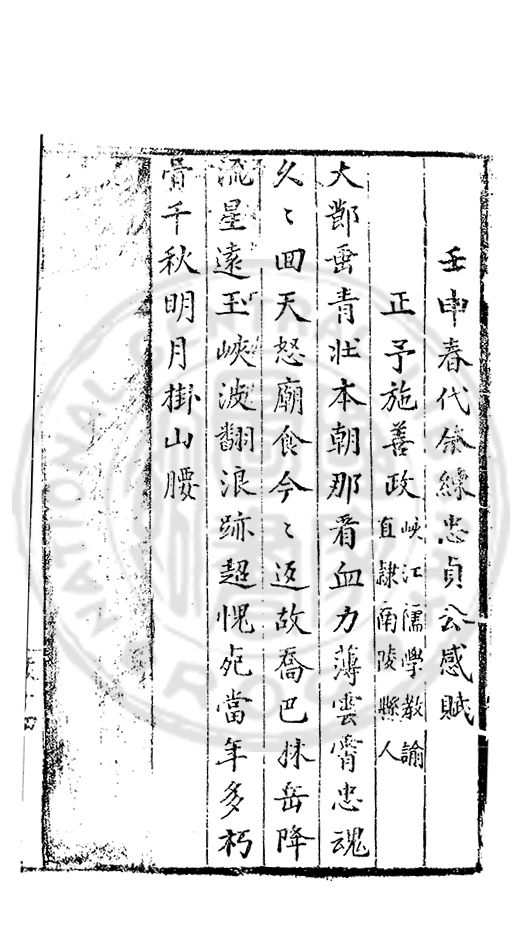 壬申春代祭練忠貞公感賦
正予施善政 峽江儒學教諭
直隸南陵縣人
大青壯本朝那看血力薄雲霄忠魂
久〻回天怒廟食今〻返故喬巴抹岳降
流星遠玉峽波翻浪跡超愧死當年多朽
骨千秋明月掛山腰
NATIONAL CENTRAL